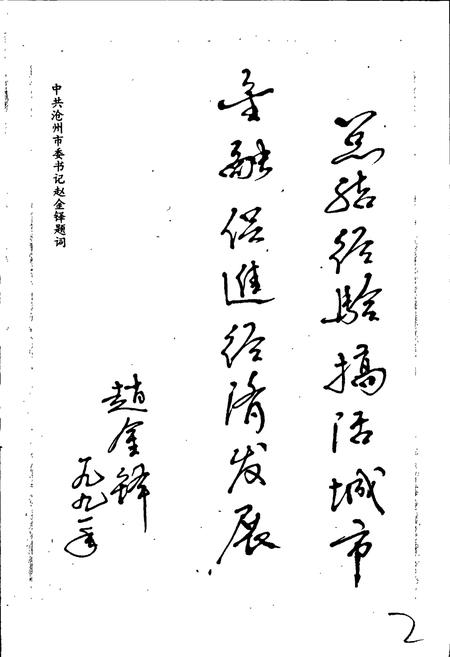 总结经验搞活城市
金融促進经济发展
趙金铎
一九九一年
中共沧州市委书记赵金铎题词
2